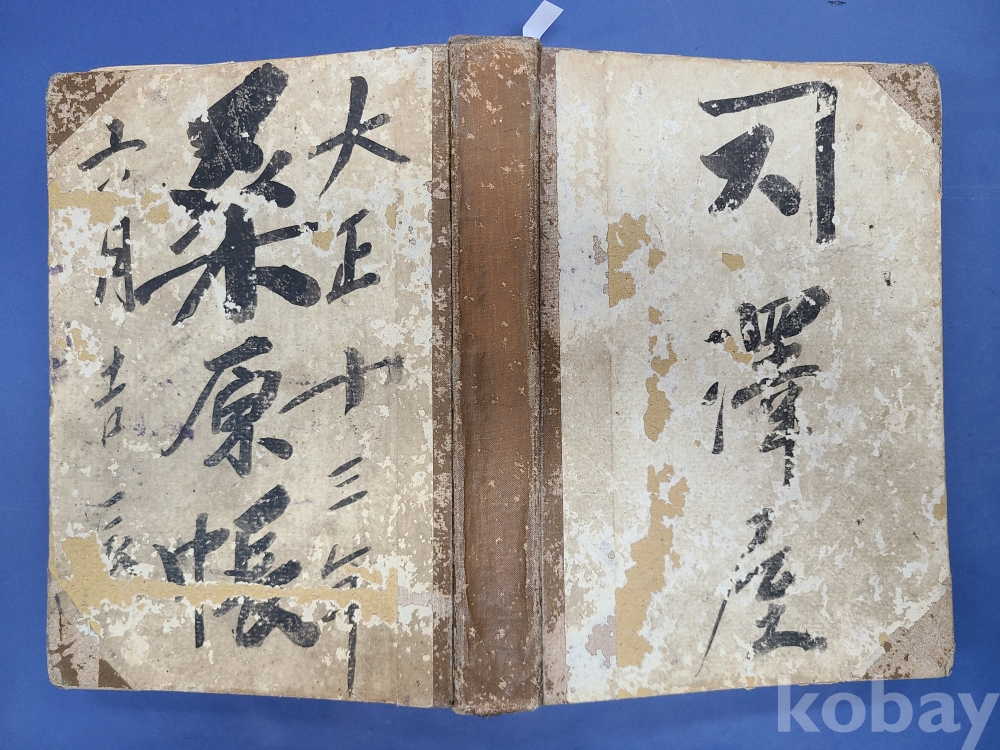 大正十三年
原帳
六月吉
澤屋
kobay